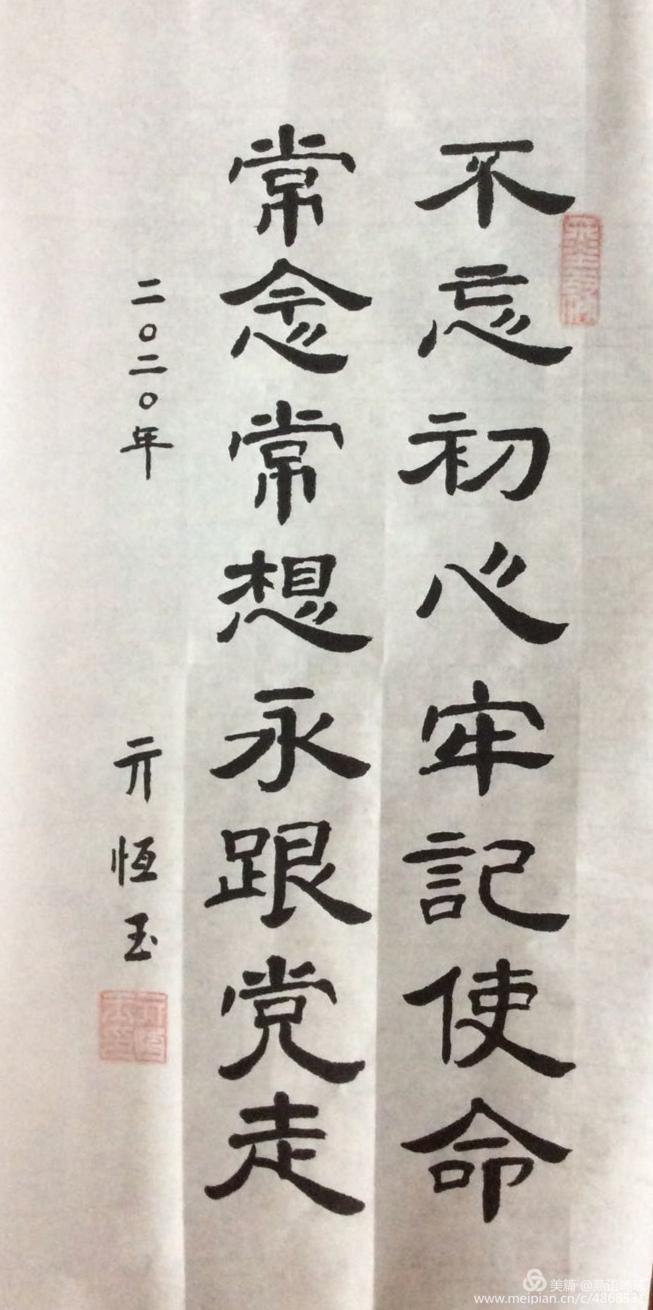 不忘初心牢記使命
常念常想永跟党走
二〇二〇年
亓恆玉
美篇